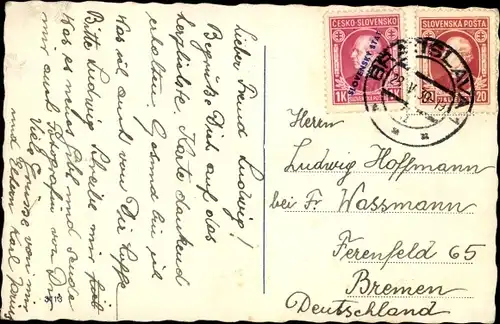 Lieber Freund Ludwig!
Begrüße Dich auf das
herzlichste. Karte dankend
erhalten. Gesund bin ich
auch von Dir hoffe
Bitte Ludwig schreibe mir
was es neues gibt und sende
mir auch Fotografien von Dir
Viele Grüße von mir
und Karl
ČESKO-SLOVENSKO
SLOVENSKÝ ŠTÁT
1K
SLOVENSKÁ POŠTA
20
BRATISLAVA
Herrn
Ludwig Hoffmann
bei Fr Wassmann
Ferenfeld 65
Bremen
Deutschland